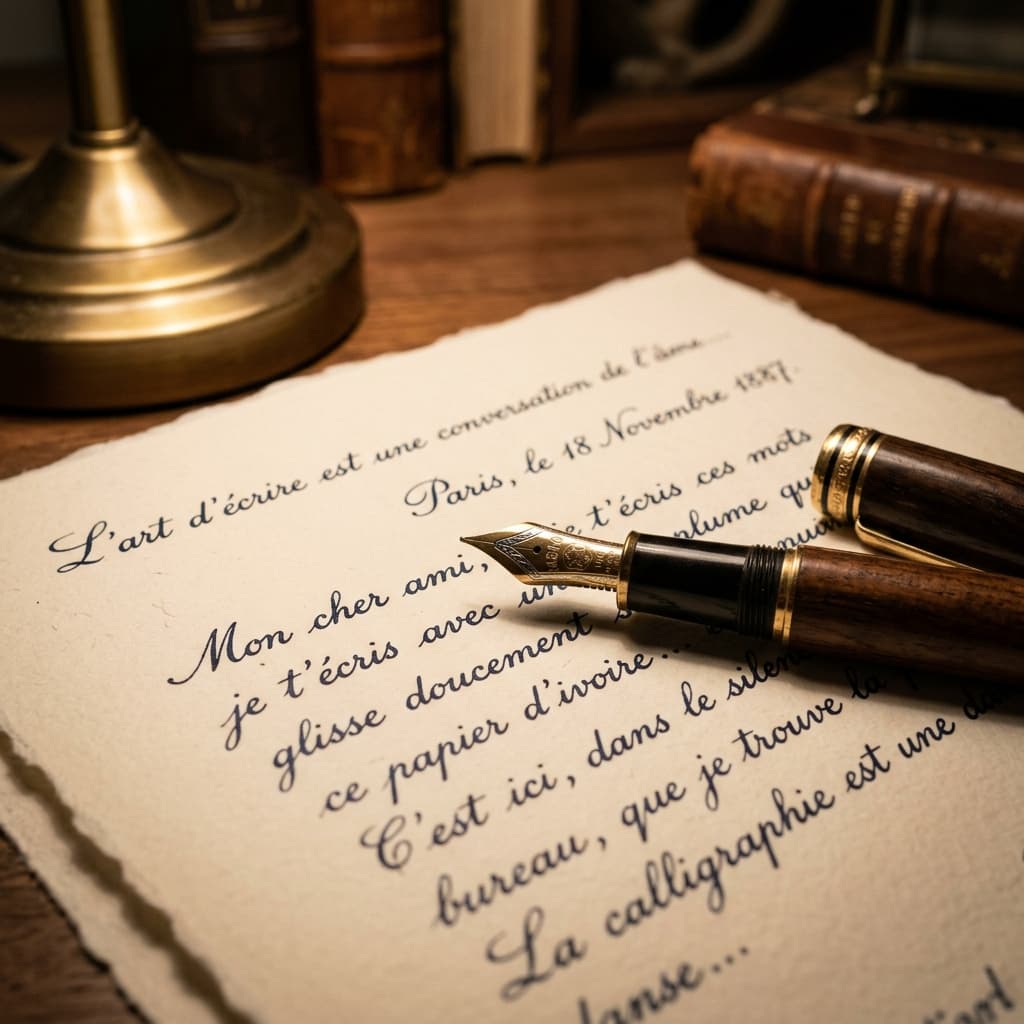 L'art d'écrire est une conversation de l'âme...
Paris, le 18 Novembre 1887.
Mon cher ami, je t'écris ces mots
je t'écris avec une plume qui
glisse doucement
ce papier d'ivoire...
C'est ici, dans le silen
bureau, que je trouve la
La calligraphie est une
danse...